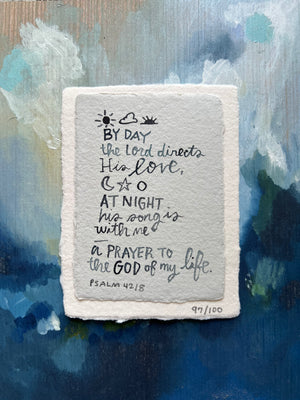 BY DAY
the Lord directs
His love,
AT NIGHT
his song is
with me
— a PRAYER TO
the GOD of my life.
PSALM 42:8
97/100